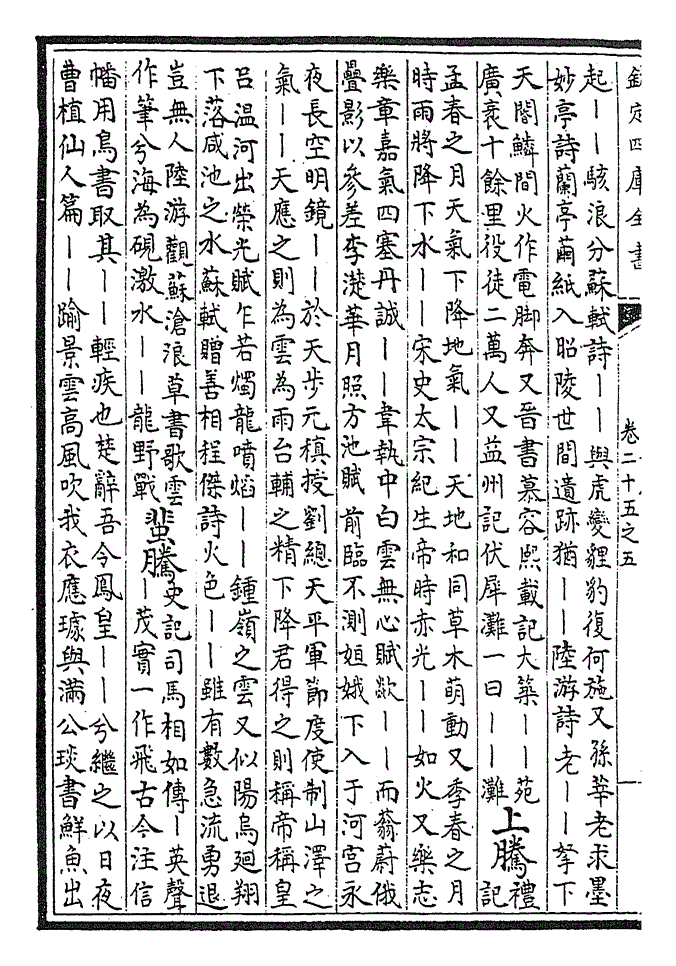 欽定四庫全書
卷二十五之五
起丨丨駭浪分蘇軾詩丨丨與虎變貍豹復何施又孫莘老求墨
妙亭詩蘭亭繭紙入昭陵世間遺跡猶丨丨陸游詩老丨丨拏下
天閣鱗間火作電脚奔又晉書慕容熙載記大築丨丨苑
廣袤十餘里役徒二萬人又益州記伏犀灘一曰丨丨灘
上騰
禮
記
孟春之月天氣下降地氣丨丨天地和同草木萌動又季春之月
時雨將降下水丨丨宋史太宗紀生帝時赤光丨丨如火又樂志
樂章嘉氣四塞丹誠丨丨韋執中白雲無心賦歘丨丨而蓊蔚俄
疊影以參差李華月照方池賦前臨不測姮娥下入于河宮永
夜長空明鏡丨丨於天步元稹授劉總天平軍節度使制山澤之
氣丨丨天應之則為雲為雨台輔之精下降君得之則稱帝稱皇
呂温河出榮光賦乍若燭龍噴焰丨丨鍾嶺之雲又似陽烏廻翔
下落咸池之水蘇軾贈善相程傑詩火色丨丨雖有數急流勇退
豈無人陸游觀蘇滄浪草書歌雲
作筆兮海為硯激水丨丨龍野戰
蜚騰
史記司馬相如傳丨英聲
丨茂實一作飛古今注信
幡用鳥書取其丨丨輕疾也楚辭吾令鳳皇丨丨兮繼之以日夜
曹植仙人篇丨丨踰景雲高風吹我衣應璩與滿公琰書鮮魚出